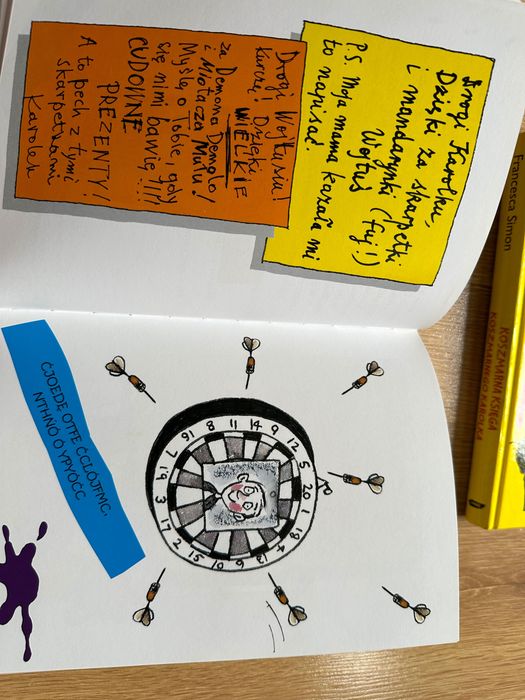 Drogi Karolku,
Dzięki za skarpetki
i mandarynki (fuj!)
Wojtuś
P.S. Moja mama kazała mi
to napisać
Drogi Wojtusiu!
kurczę! Dzięki
WIELKIE
za Demona Demolo!
i Miotacza Mułu!
Myślę o Tobie, gdy
się nimi bawię!!!!
CUDOWNE
PREZENTY!
A to pech z tymi
skarpetkami
Karolek
ĆJOEDE OTFE ĆCLÓJFMC,
NTHNÓ Ó YPYÓĆC
20 1 18 4 13 6 10 15 2 17 3 19 7 16 8 11 14 9 12 5
Francesca Simon
KOSZMARNA KSIĘGA
KOSZMARNEGO KAROLKA